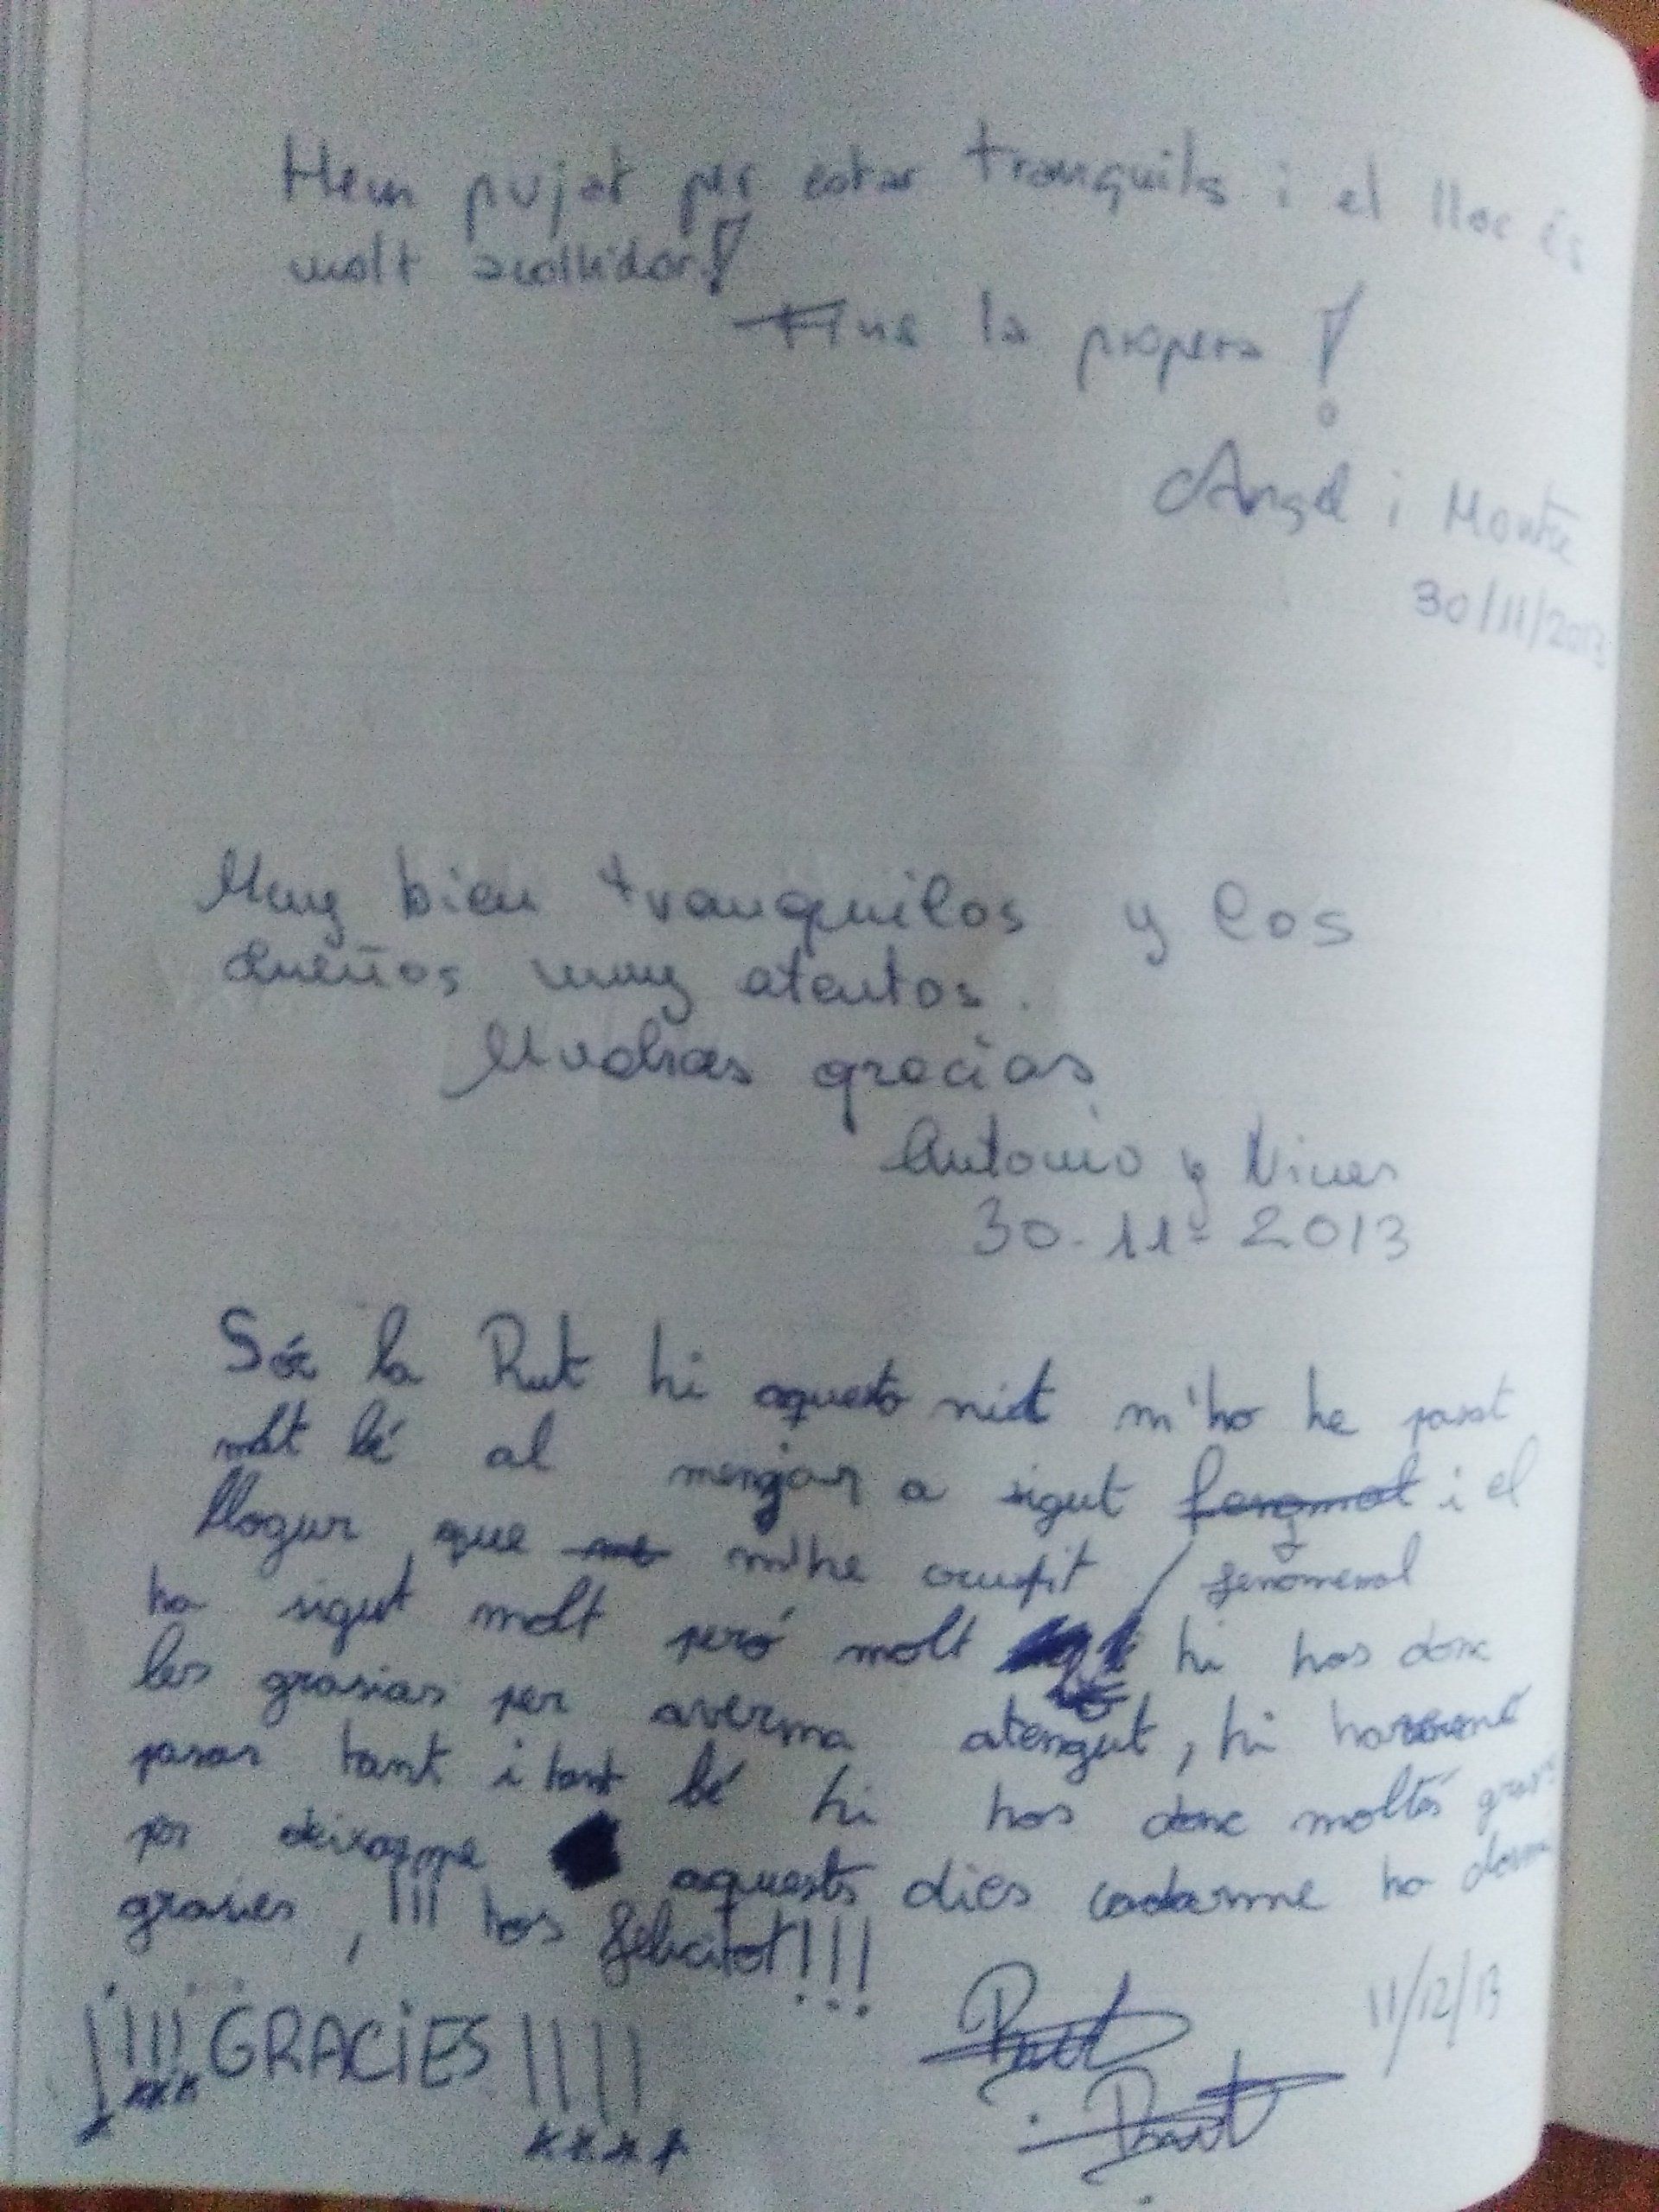 Hem pujat per estar tranquils i el lloc és
molt acollidor!
Fins la propera!
Àngel i Montse
30/11/2013
Muy bien tranquilos y los
dueños muy atentos.
Muchas gracias
Antonio y Nieves
30-11-2013
Sóc la Rut hi aquesta nit m'ho he pasat
molt bé al menjar a sigut i el
llogur que m'he fenomenal
ha sigut molt peró molt hi hos donc
les grasias per averma atengut, hi
pasar tant i tant bé hi hos donc moltes
per deixarme aquests dies ha
grasies, !!! hos felicitot!!!
¡!!! GRACIES !!!!
Rut
11/12/13
Rut